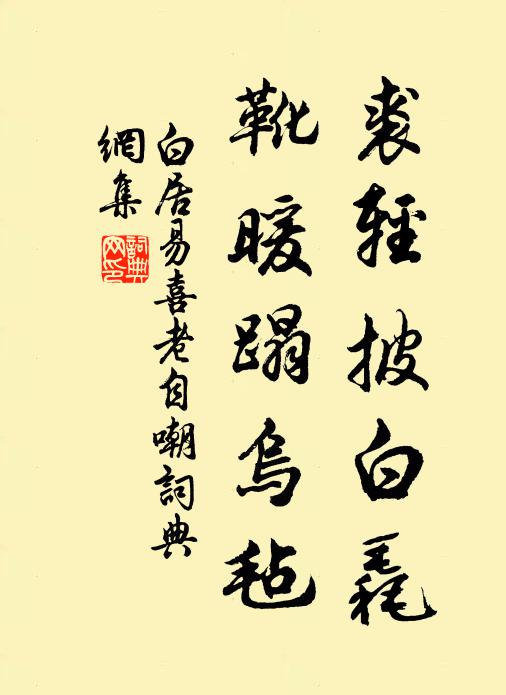 裘輕披白毳
靴暖蹋烏毡
白居易喜老自嘲詞典
網集
詞典
网印